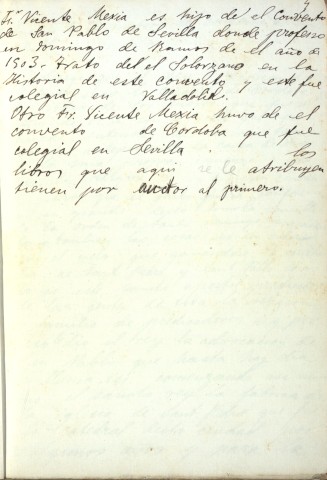 Fr. Vicente Mexia es hijo de el Convento
de San Pablo de Sevilla donde profeso
un domingo de Ramos de el año de
1503. Trato del el Solorzano en la
Historia de este convento y este fue
colegial en Valladolid.
Otro Fr. Vicente Mexia huvo de el
convento de Cordoba que fue
colegial en Sevilla. Los
libros que aqui se le atribuyen
tienen por autor al primero.